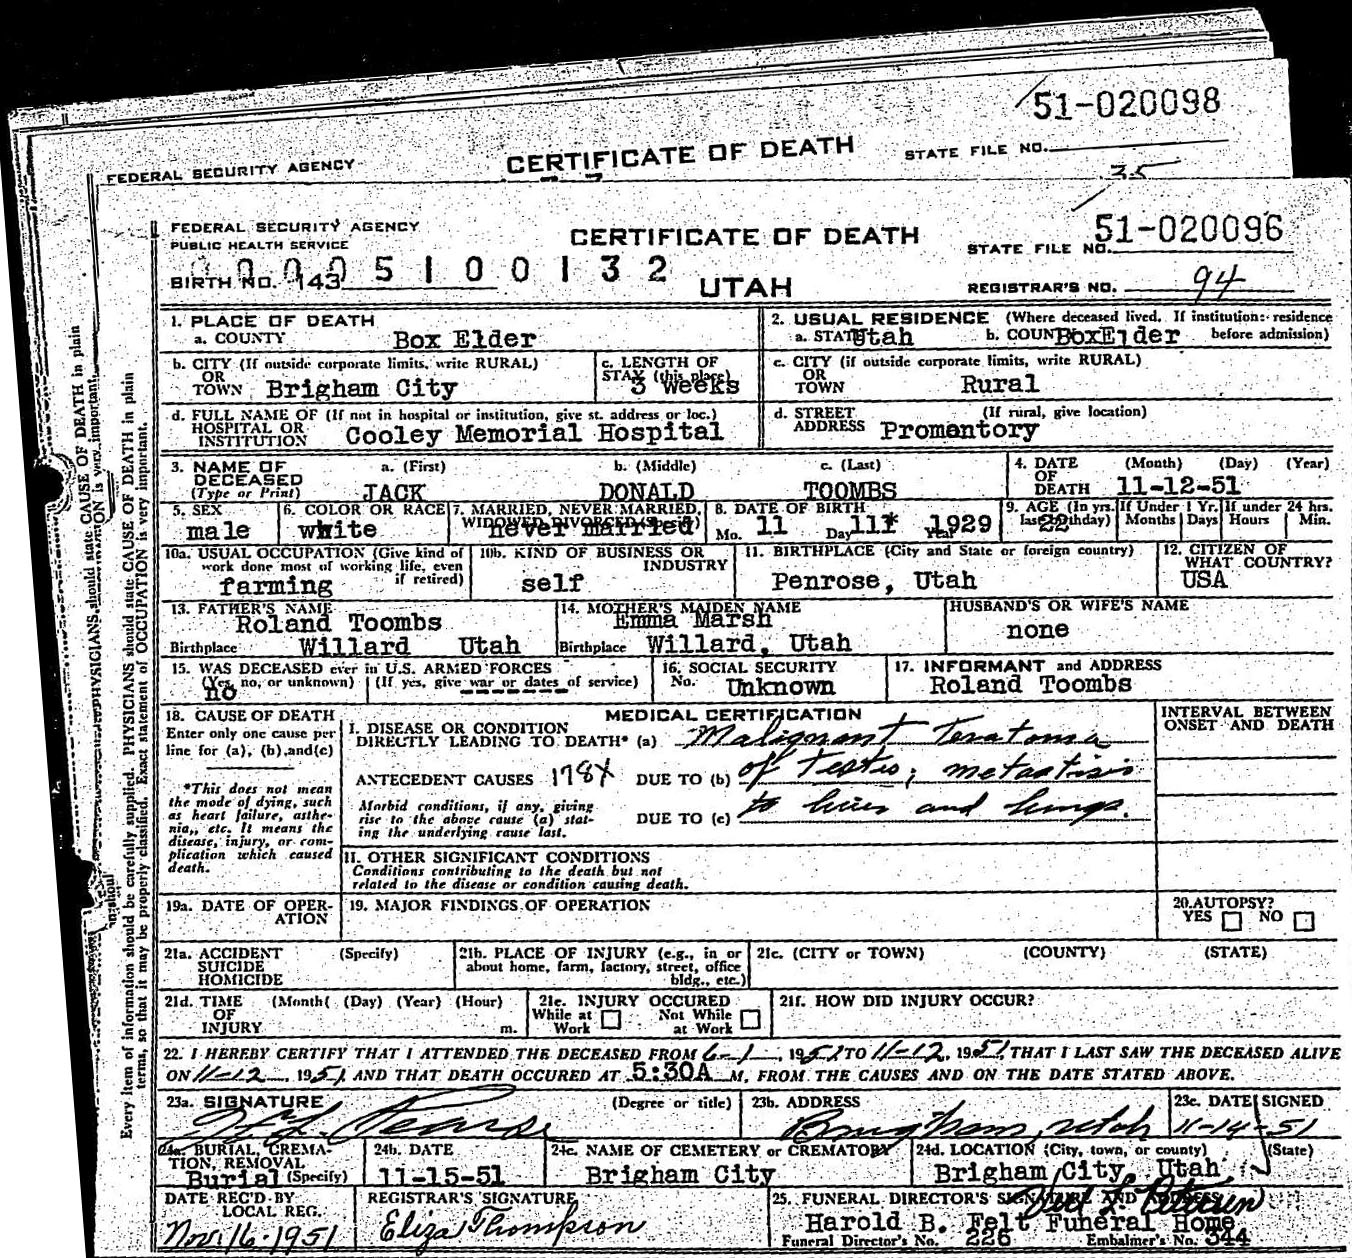 51-020098
FEDERAL SECURITY AGENCY CERTIFICATE OF DEATH STATE FILE NO.
35
FEDERAL SECURITY AGENCY
PUBLIC HEALTH SERVICE
CERTIFICATE OF DEATH
STATE FILE NO. 51-020096
BIRTH NO. 143
0 0 0 0 5 1 0 0 1 3 2
UTAH
REGISTRAR'S NO. 94
1. PLACE OF DEATH
a. COUNTY Box Elder
2. USUAL RESIDENCE (Where deceased lived. If institution: residence before admission)
a. STATE Utah b. COUNTY BoxElder
b. CITY (If outside corporate limits, write RURAL)
OR
TOWN Brigham City
c. LENGTH OF
STAY (this place)
3 weeks
c. CITY (if outside corporate limits, write RURAL)
OR
TOWN Rural
d. FULL NAME OF (If not in hospital or institution, give st. address or loc.)
HOSPITAL OR
INSTITUTION Cooley Memorial Hospital
d. STREET (If rural, give location)
ADDRESS Promontory
3. NAME OF
DECEASED
(Type or Print)
a. (First) b. (Middle) c. (Last)
JACK DONALD TOOMBS
4. DATE (Month) (Day) (Year)
OF
DEATH 11-12-51
5. SEX
male
6. COLOR OR RACE
white
7. MARRIED, NEVER MARRIED,
WIDOWED DIVORCED (Specify)
never married
8. DATE OF BIRTH
Mo. 11 Day 11 Year 1929
9. AGE (In yrs. last birthday)
22
If Under 1 Yr.
Months Days
If under 24 hrs.
Hours Min.
10a. USUAL OCCUPATION (Give kind of
work done most of working life, even
if retired)
farming
10b. KIND OF BUSINESS OR
INDUSTRY
self
11. BIRTHPLACE (City and State or foreign country)
Penrose, Utah
12. CITIZEN OF
WHAT COUNTRY?
USA
13. FATHER'S NAME
Roland Toombs
Birthplace Willard Utah
14. MOTHER'S MAIDEN NAME
Emma Marsh
Birthplace Willard, Utah
HUSBAND'S OR WIFE'S NAME
none
15. WAS DECEASED ever in U.S. ARMED FORCES
(Yes, no, or unknown) (If yes, give war or dates of service)
no
16. SOCIAL SECURITY
No. Unknown
17. INFORMANT and ADDRESS
Roland Toombs
18. CAUSE OF DEATH
Enter only one cause per
line for (a), (b), and (c)
*This does not mean
the mode of dying, such
as heart failure, asthe-
nia,, etc. It means the
disease, injury, or com-
plication which caused
death.
MEDICAL CERTIFICATION
I. DISEASE OR CONDITION
DIRECTLY LEADING TO DEATH* (a) Malignant Teratoma
ANTECEDENT CAUSES 178X DUE TO (b) of Testis; metastisis
Morbid conditions, if any, giving
rise to the above cause (a) stat-
ing the underlying cause last.
DUE TO (c) to liver and lungs.
INTERVAL BETWEEN
ONSET AND DEATH
II. OTHER SIGNIFICANT CONDITIONS
Conditions contributing to the death but not
related to the disease or condition causing death.
19a. DATE OF OPER-
ATION
19. MAJOR FINDINGS OF OPERATION
20. AUTOPSY?
YES NO
21a. ACCIDENT (Specify)
SUICIDE
HOMICIDE
21b. PLACE OF INJURY (e.g., in or
about home, farm, factory, street, office
bldg., etc.)
21c. (CITY or TOWN) (COUNTY) (STATE)
21d. TIME (Month( (Day) (Year) (Hour)
OF
INJURY m.
21e. INJURY OCCURED
While at Work Not While at Work
21f. HOW DID INJURY OCCUR?
22. I HEREBY CERTIFY THAT I ATTENDED THE DECEASED FROM 6-1, 1951 TO 11-12, 1951, THAT I LAST SAW THE DECEASED ALIVE
ON 11-12, 1951 AND THAT DEATH OCCURED AT 5:30A M, FROM THE CAUSES AND ON THE DATE STATED ABOVE.
23a. SIGNATURE (Degree or title)
23b. ADDRESS
Brigham, Utah
23c. DATE SIGNED
11-14-51
24a. BURIAL, CREMA-
TION, REMOVAL
Burial (Specify)
24b. DATE
11-15-51
24c. NAME OF CEMETERY or CREMATORY
Brigham City
24d. LOCATION (City, town, or county) (State)
Brigham City, Utah
DATE REC'D BY
LOCAL REG.
Nov. 16-1951
REGISTRAR'S SIGNATURE
Eliza Thompson
25. FUNERAL DIRECTOR'S SIGNATURE AND ADDRESS
Harold B. Felt Funeral Home
Funeral Director's No. 226 Embalmer's No. 344
Every item of information should be carefully supplied. PHYSICIANS should state CAUSE OF DEATH in plain
terms, so that it may be properly classified. Exact statement of OCCUPATION is very important.
PHYSICIANS should state CAUSE OF DEATH in plain